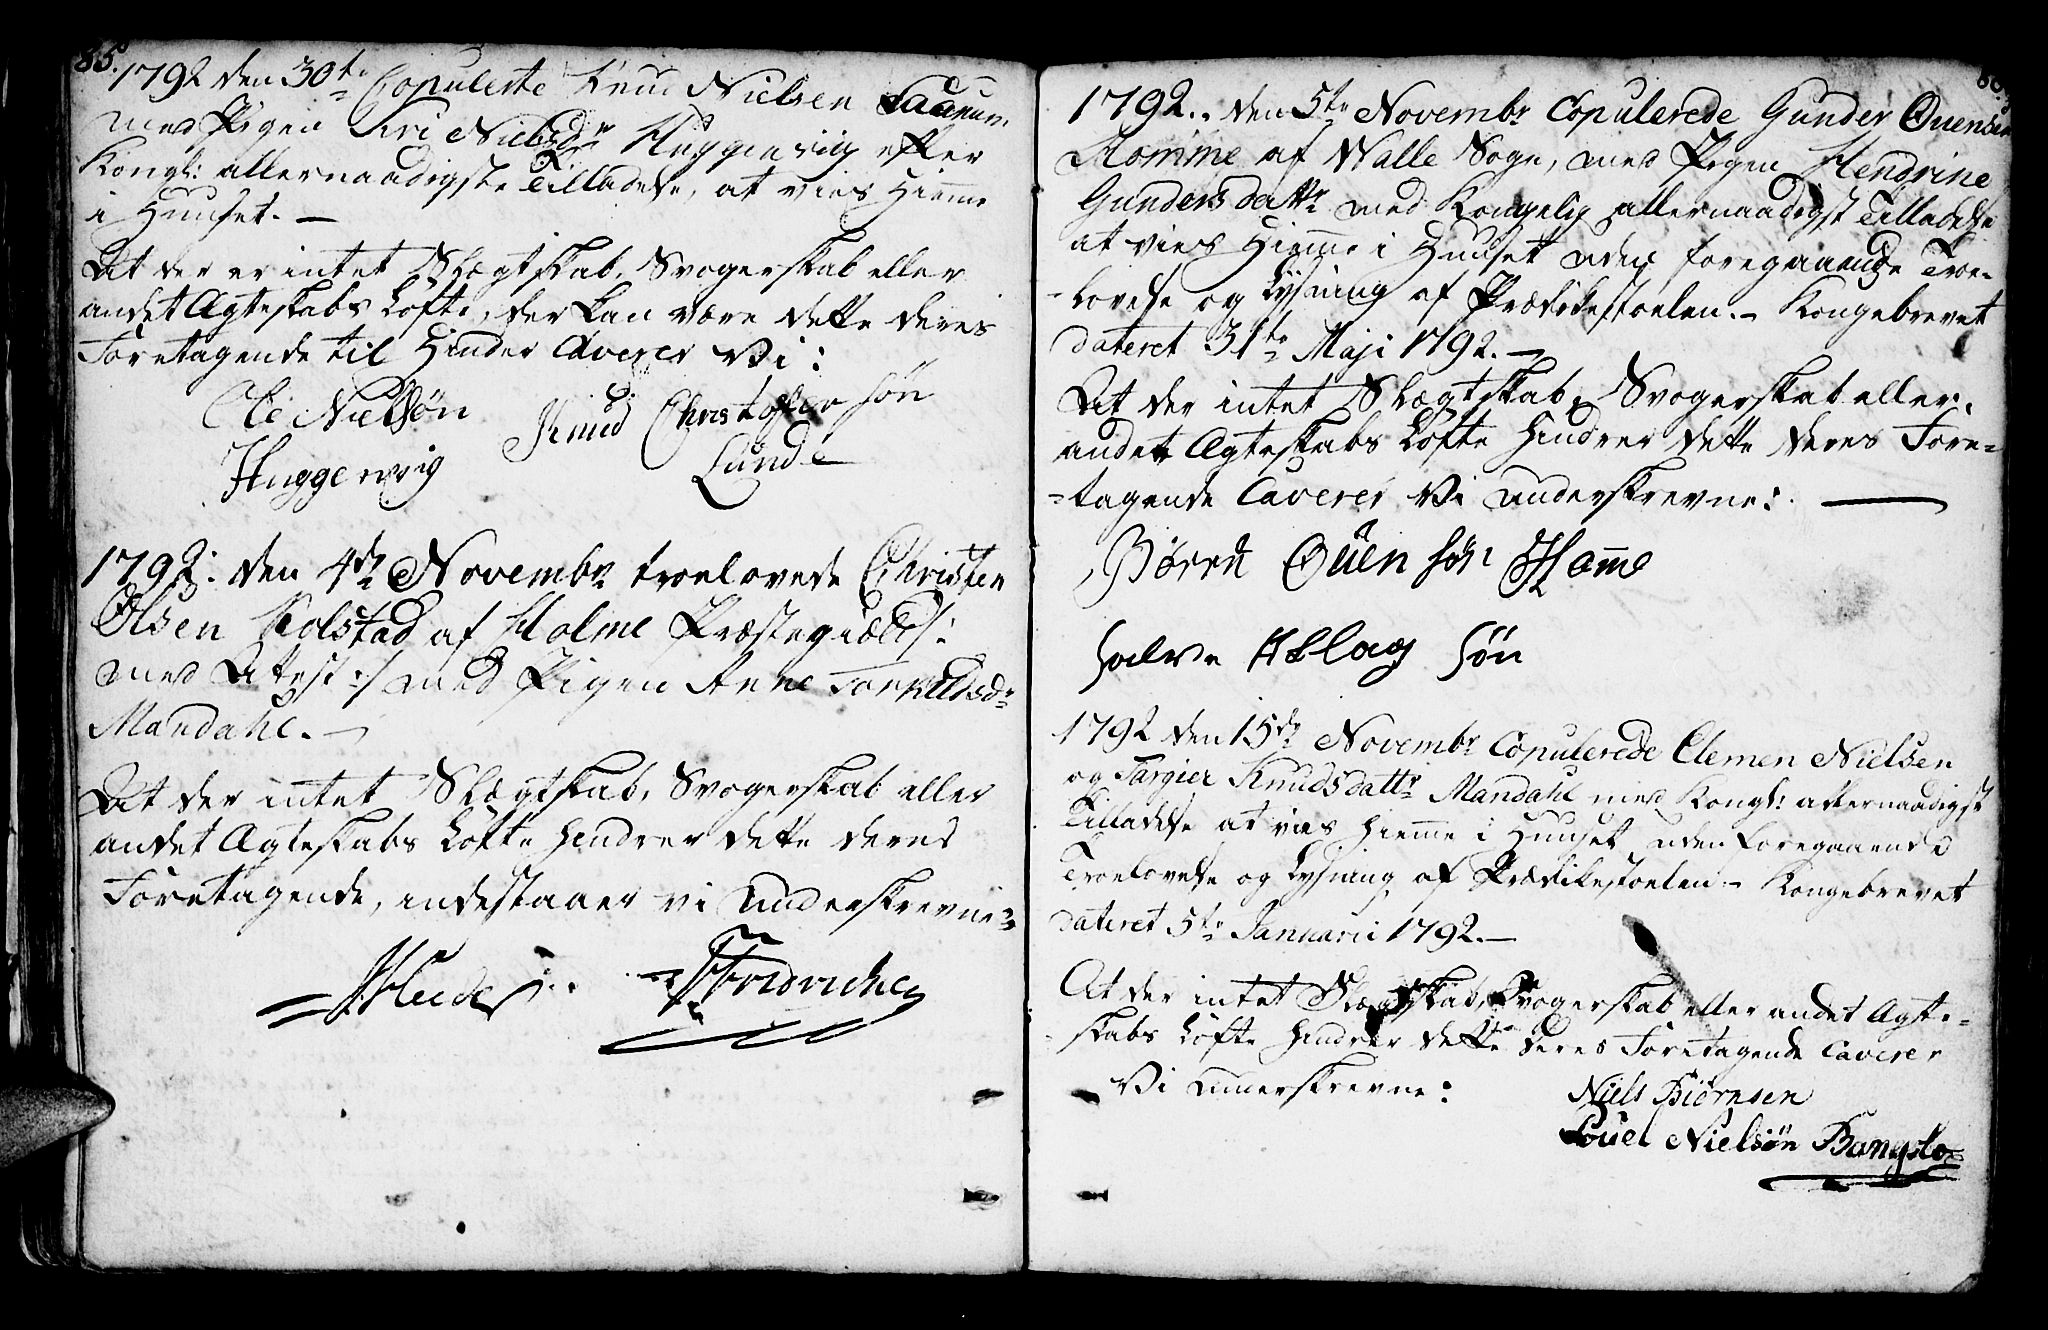 85.
1792 den 30te Copulerte Knud Nielsen
med Pigen Siri Nielsdr Huggenviig efter
Kongl: allernaadigste Tilladelse, at vies Hieme
i Huuset. —
At der er intet Slægtskab, Svogerskab eller
andet Ægteskabs Løfte, der kan være dette deres
Foretagende til Hinder Caverer Vi:
Ole Nielsøn Knud Christoffer søn
Huggenvig Lunde
1792: den 4de Novembr troelovede Christen
Olsen Kolstad af Holme Præstegiæld /:
med Attest :/ med Pigen Anne Torkildsdr
Mandahl. —
At der intet Slægtskab, Svogerskab eller
andet Ægteskabs Løfte hindrer dette deres
Foretagende, indestaaer vi underskrevne:
Fridrichsen
1792. den 5te Novembr Copulerede Gunder Ouensen
Homme af Walle Sogn, med Pigen Hendrine
Gundersdattr med Kongelig allernaadigst Tilladelse
at vies Hieme i Huuset uden foregaaende Troe-
-lovelse og Lysning af Prædikestoelen. - Kongebrevet
dateret 31te Maji 1792. —
At der intet Slægtskab, Svogerskab eller
andet Ægteskabs Løfte Hindrer dette deres Fore-
-tagende Caverer Vi underskrevne: —
Børre Ouen søn Homme
halvor Aslag søn
1792 den 15de Novembr Copulerede Clemen Nielsen
og Targier Knudsdattr Mandahl med Kongl: allernaadigst
Tilladelse at vies hieme i Huuset uden foregaaende
Troelovelse og Lysning af Prædikestoelen - Kongebrevet
dateret 5te Januarii 1792. —
At der intet Slægtskab, Svogerskab eller andet Ægte-
-skabs Løfte Hindrer dette deres Foretagende Caverer
Vi underskrevne:
Niels Biørnsen
Nielsøn